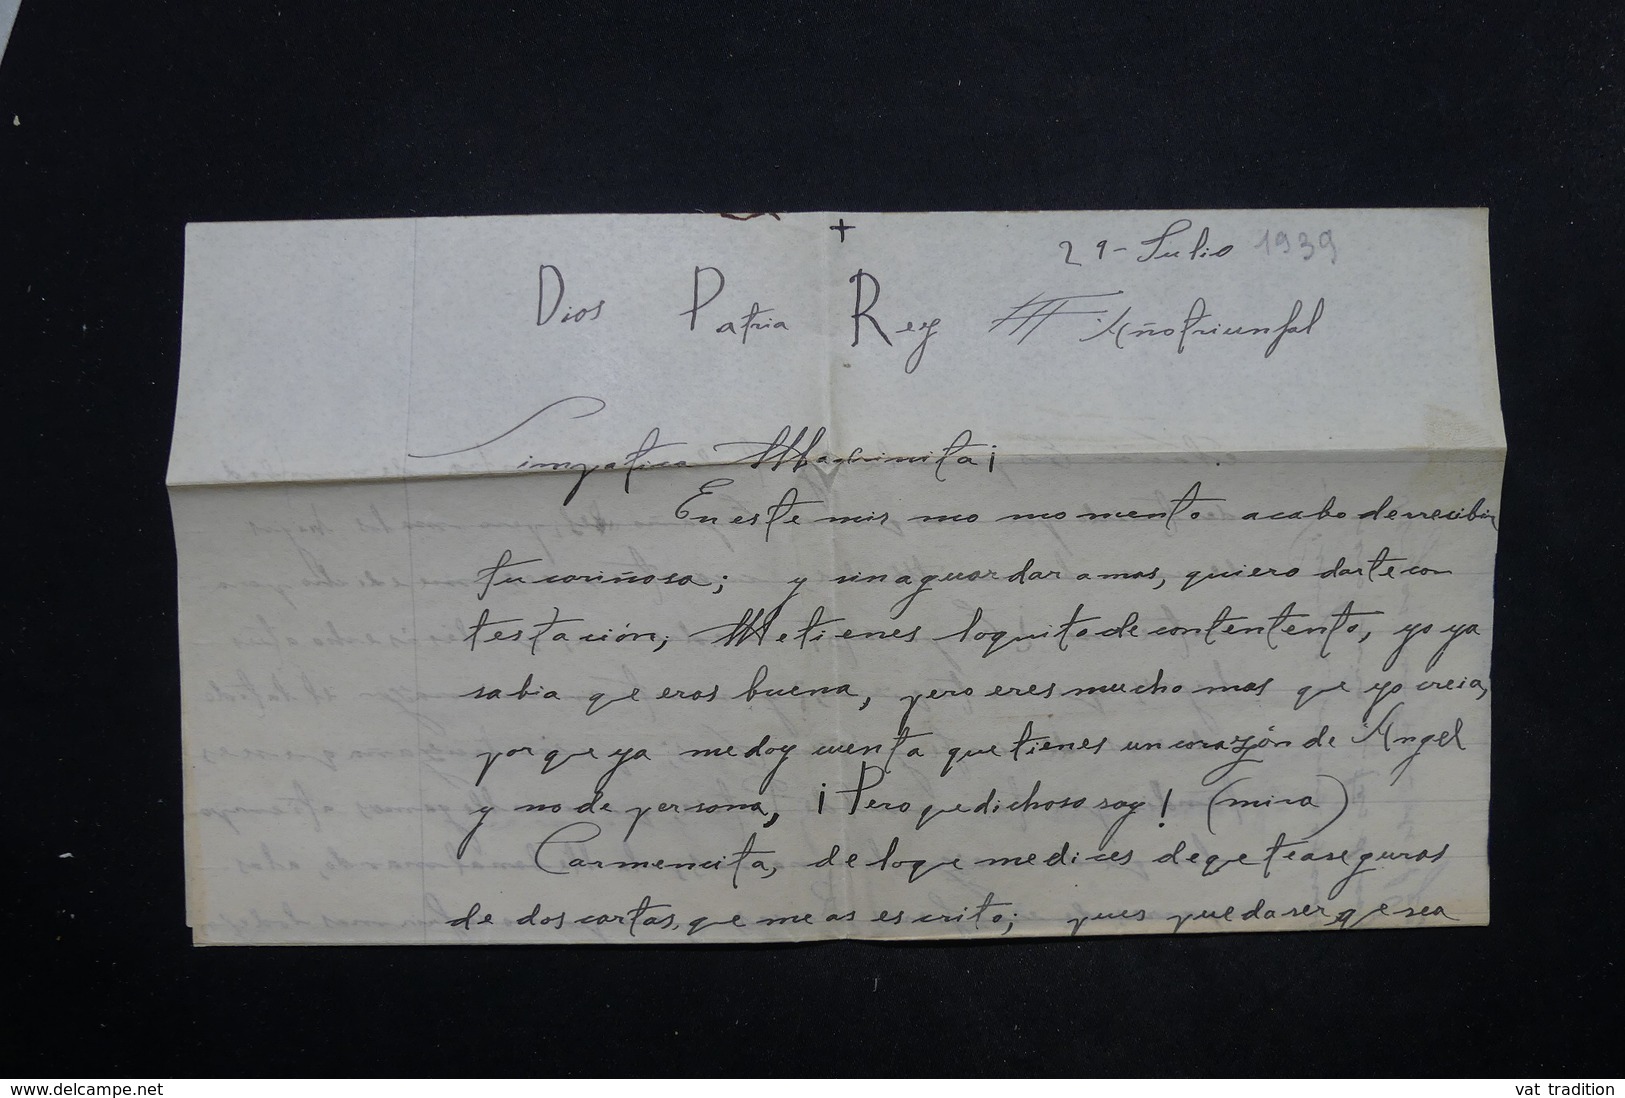 +
29-Julio 1939
Dios Patria Rey III Año triunfal
Simpatica Madrinita¡
En este mis mo momento acabo derrecibir
tu cariñosa; y sin aguardar a mas, quiero darte con
testación; Me tienes loquito de contentento, yo ya
sabia qe eras buena, pero eres mucho mas qe yo creia,
por qe ya me doy cuenta que tienes un corazón de Angel
y no de persona, ¡Pero qe dichoso soy! (mira)
Carmencita, de lo qe me dices de qe te aseguras
de dos cartas, qe me as escrito; pues pueda ser, qe sea
www.delcampe.net
vat tradition